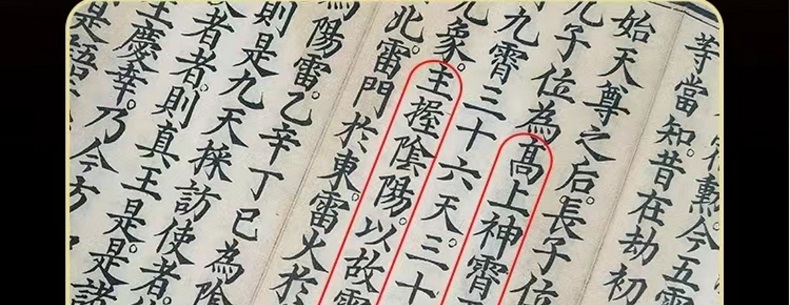 等當知。昔在劫初
勲。今五雷
始天尊之后。長子位
九子位為高上神霄
九霄三十六天。三十
元象。主握陰陽。以故雷
北。雷門於東。雷火於
為陽雷。乙辛丁巳為陰
則是九天採訪使者
者。則真王是。是諸
主慶幸。乃今方